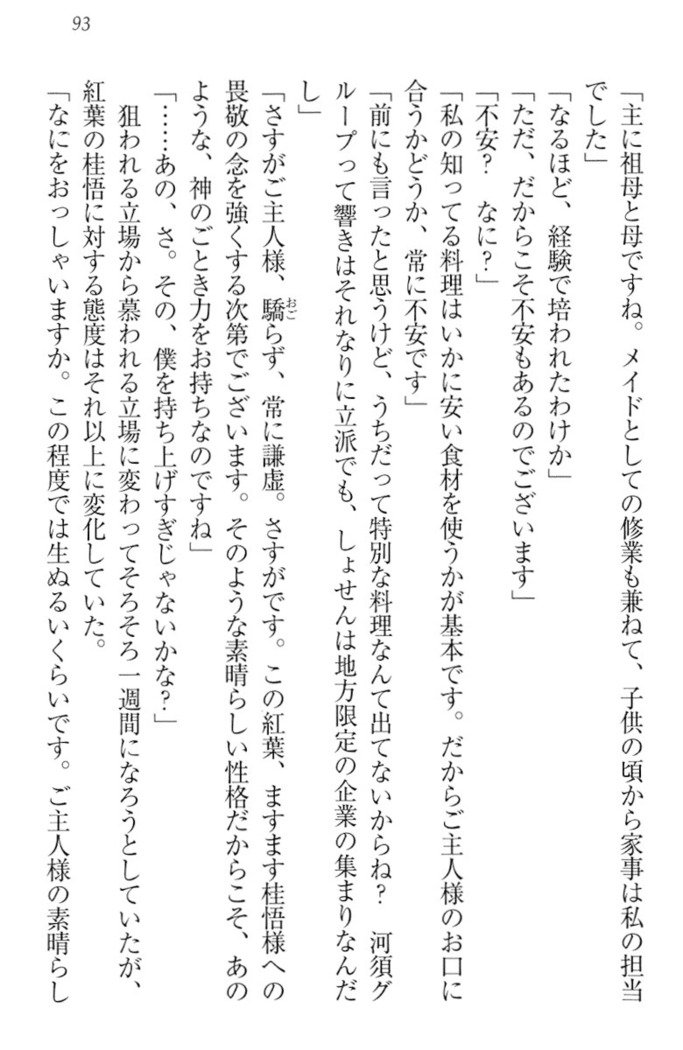 93
「主に祖母と母ですね。メイドとしての修業も兼ねて、子供の頃から家事は私の担当
でした」
「なるほど、経験で培われたわけか」
「ただ、だからこそ不安もあるのでございます」
「不安？　なに？」
「私の知ってる料理はいかに安い食材を使うかが基本です。だからご主人様のお口に
合うかどうか、常に不安です」
「前にも言ったと思うけど、うちだって特別な料理なんて出てないからね？　河須グ
ループって響きはそれなりに立派でも、しょせんは地方限定の企業の集まりなんだ
し」
「さすがご主人様、驕らず、常に謙虚。さすがです。この紅葉、ますます桂悟様への
畏敬の念を強くする次第でございます。そのような素晴らしい性格だからこそ、あの
ような、神のごとき力をお持ちなのですね」
「……あの、さ。その、僕を持ち上げすぎじゃないかな？」
　狙われる立場から慕われる立場に変わってそろそろ一週間になろうとしていたが、
紅葉の桂悟に対する態度はそれ以上に変化していた。
「なにをおっしゃいますか。この程度では生ぬるいくらいです。ご主人様の素晴らし